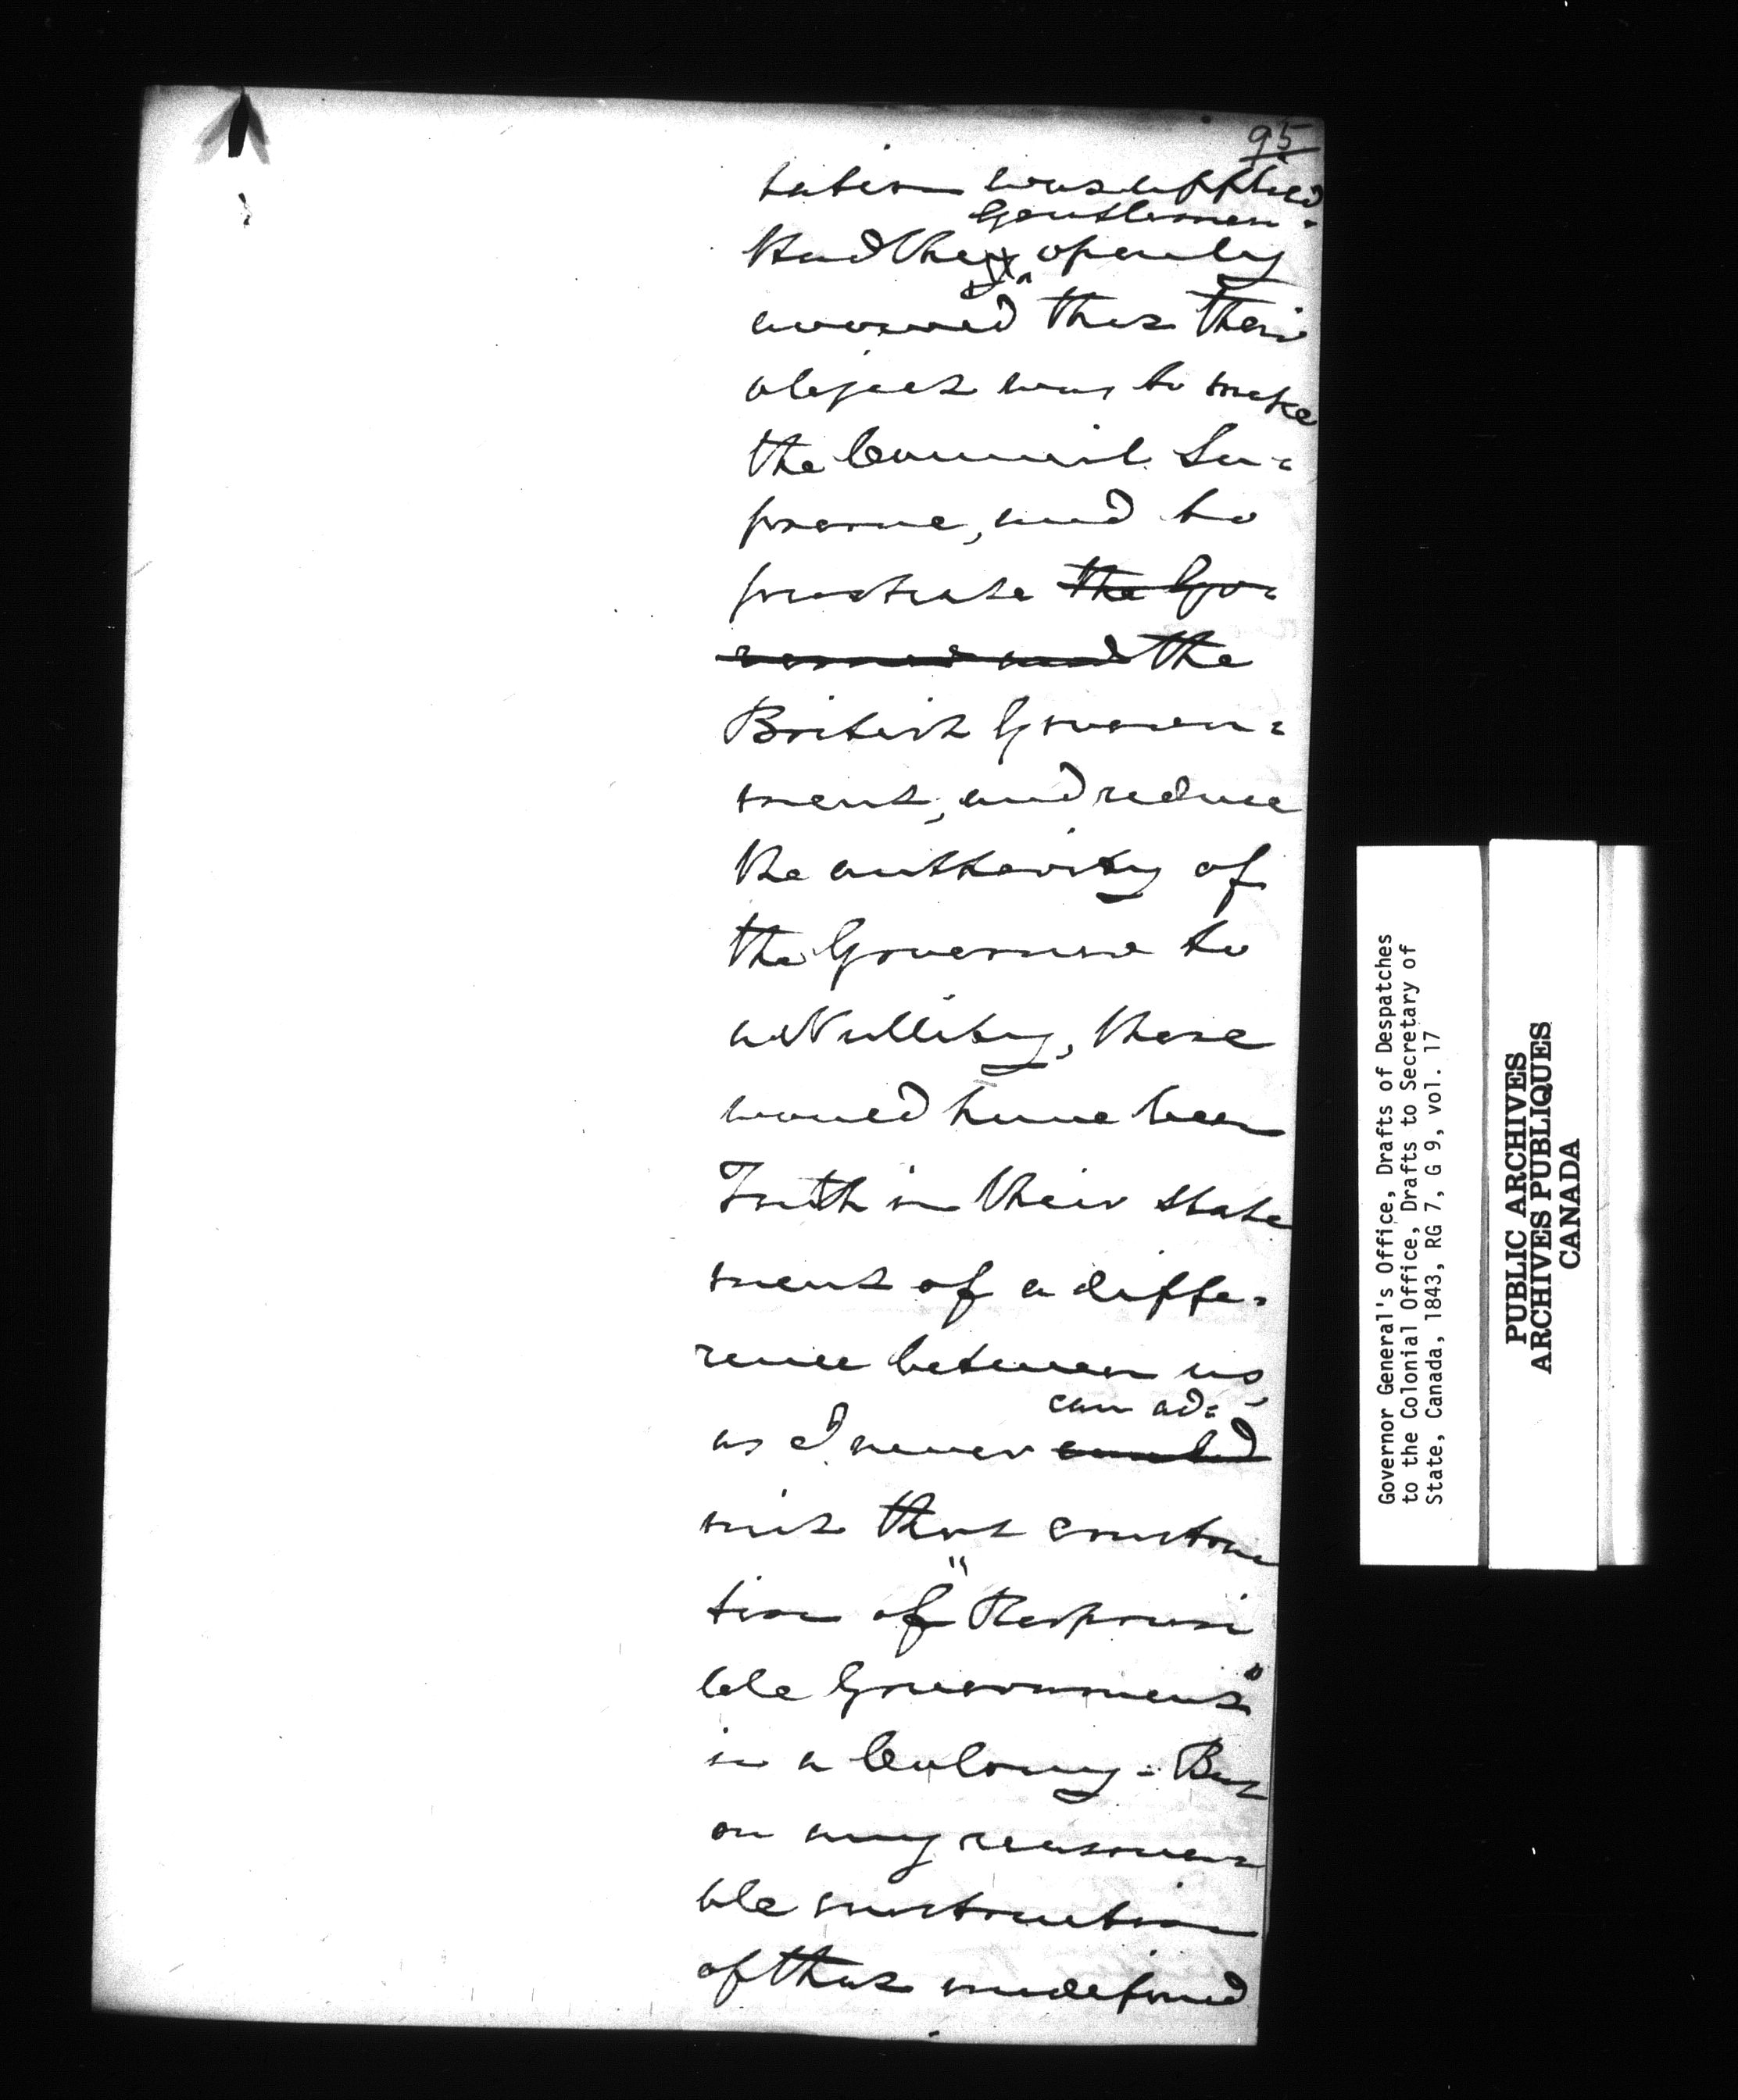 95
tation was applied
Gentlemen
Had the openly
avowed that their
object was to make
the Council Su=
preme, and to
prostrate the Go=
vernor and the
British Govern=
ment, and reduce
the authority of
the Governor to
a Nullity, there
would have been
Truth in their state
ment of a diffe=
rence between us,
can ad=
as I never could
mit that construc
tion of "Responsi
ble Government"
in a Colony = But
on any reasona
ble construction
of that undefined
Governor General's Office, Drafts of Despatches
to the Colonial Office, Drafts to Secretary of
State, Canada, 1843, RG 7, G 9, vol. 17
PUBLIC ARCHIVES
ARCHIVES PUBLIQUES
CANADA